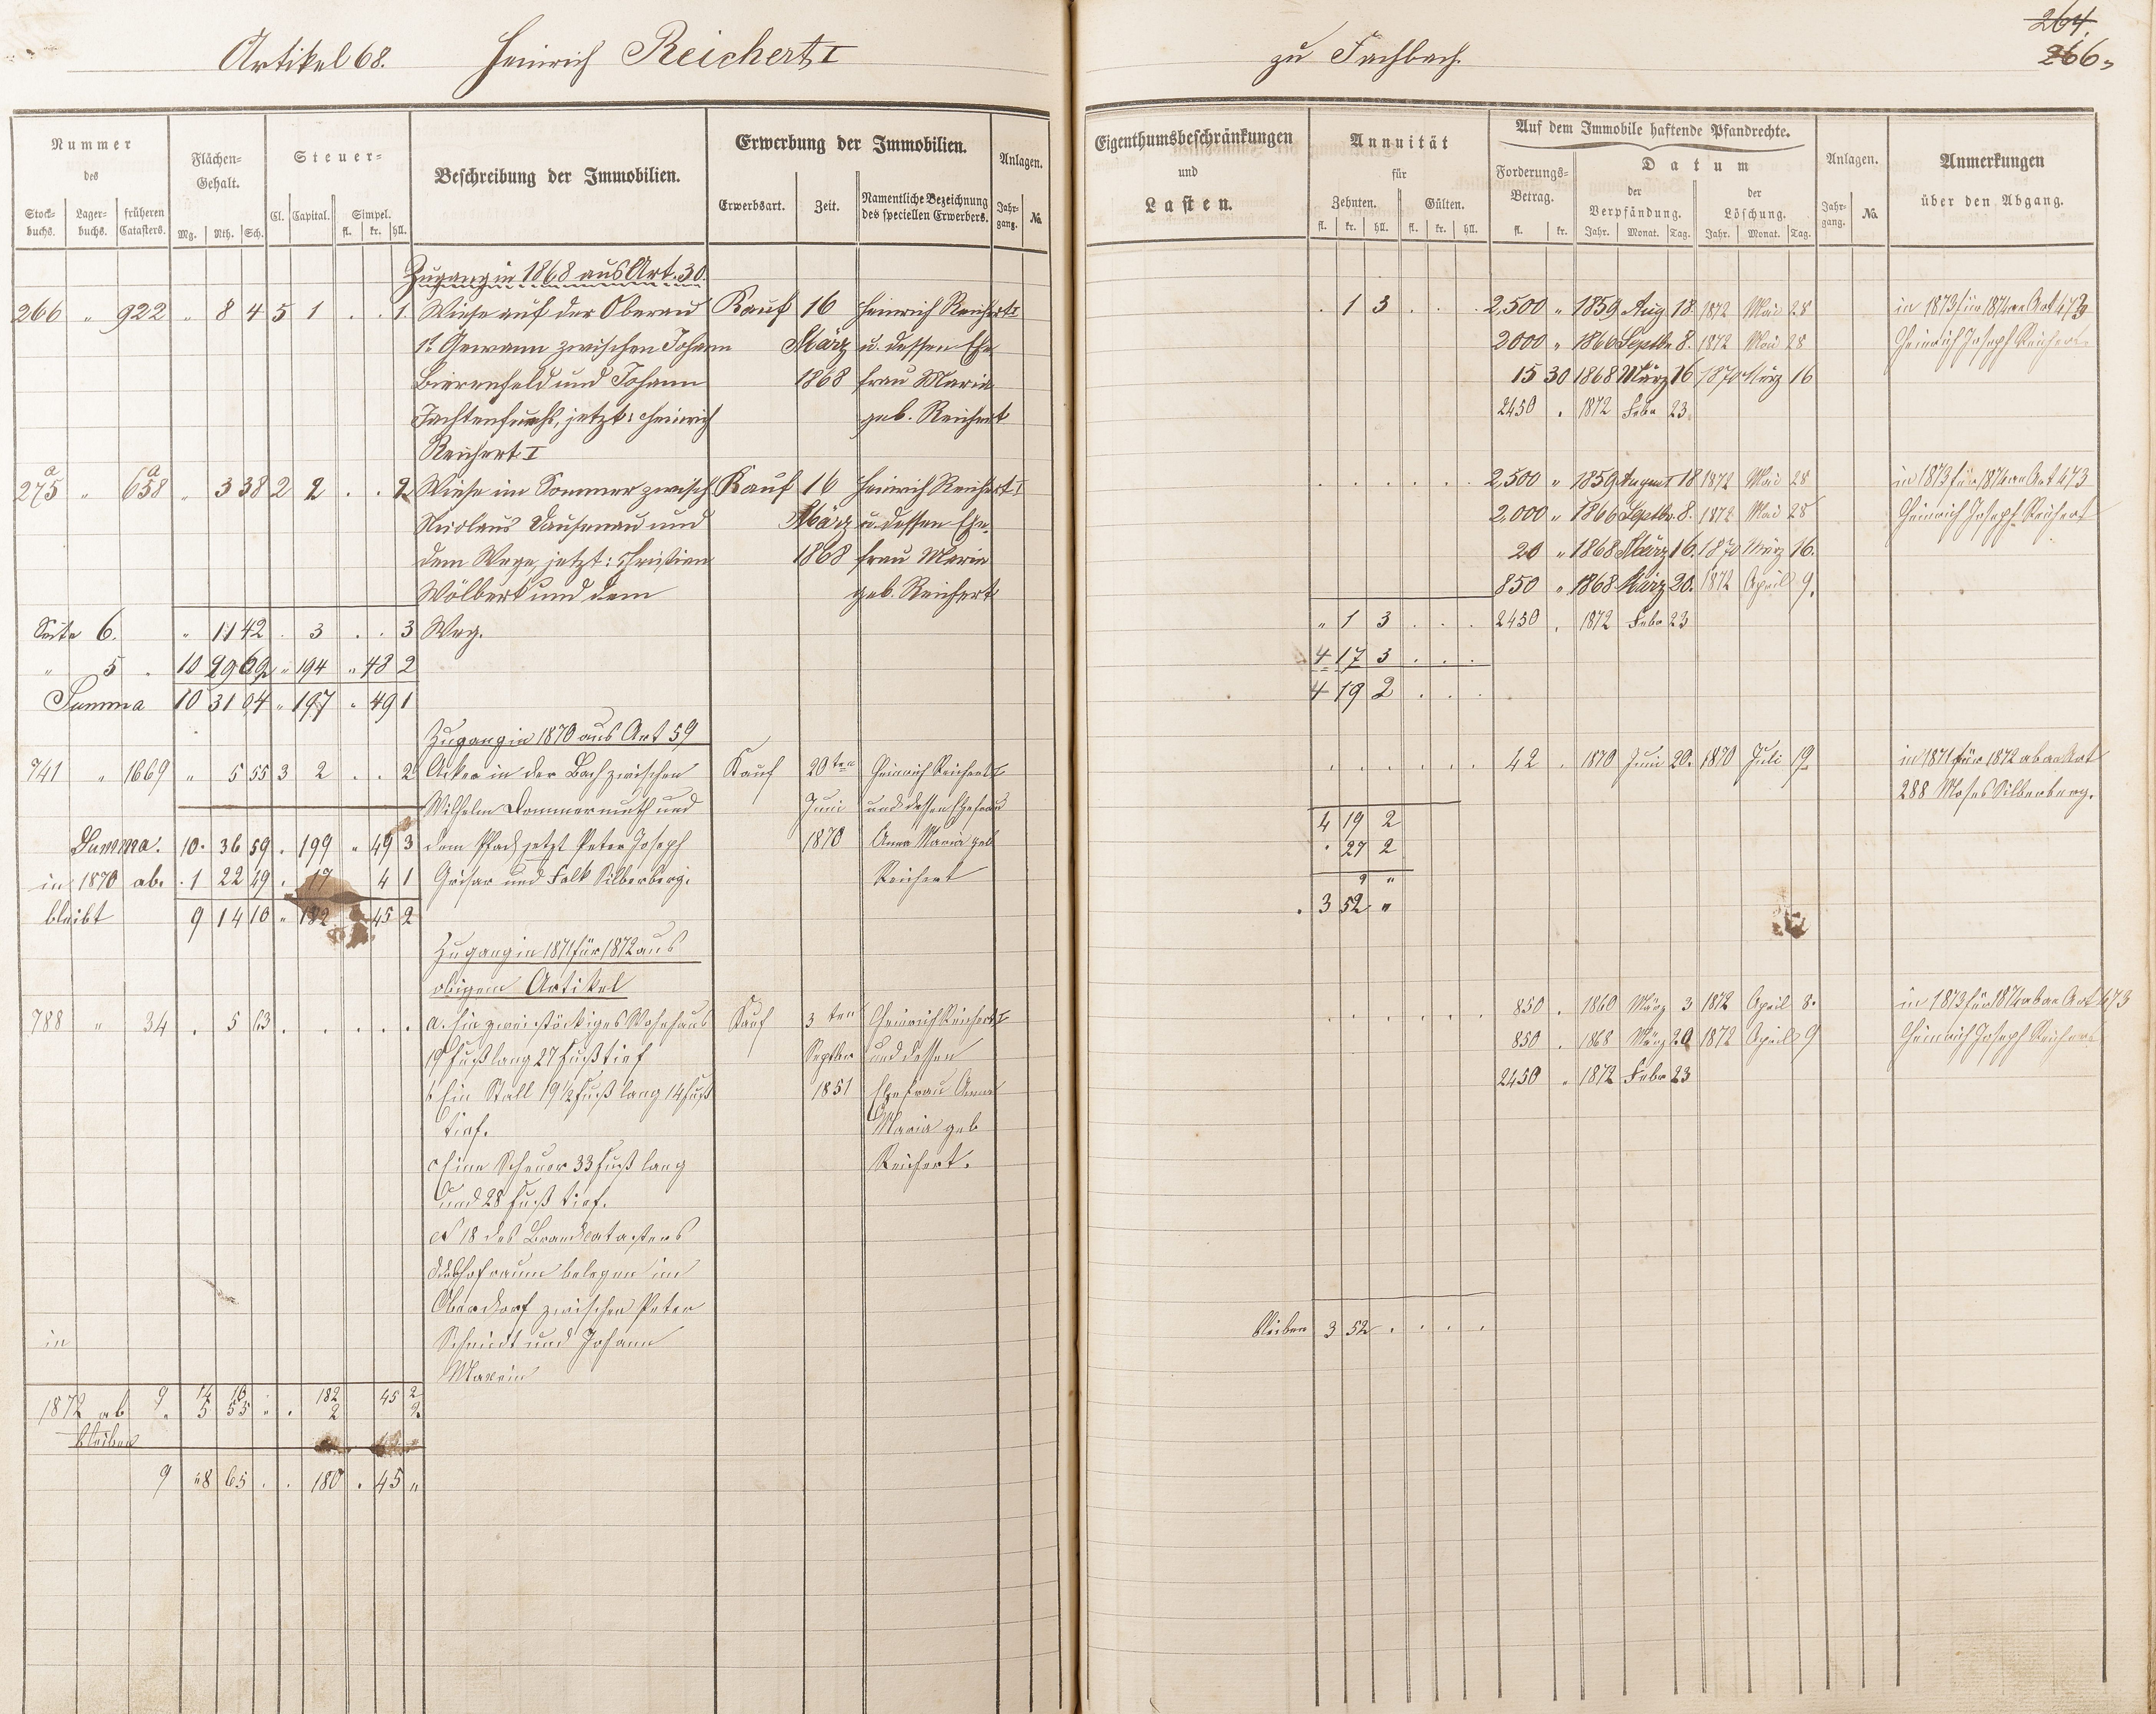 Artikel 68. Heinrich Reichert I zu Fachbach.
264.
266.
Nummer des
Stockbuchs. Lagerbuchs. früheren Catasters.
Flächen-Gehalt.
Mg. Rth. Sch.
Steuer-
Cl. Capital. Simpel.
fl. kr. hll.
Beschreibung der Immobilien.
Erwerbung der Immobilien.
Erwerbsart. Zeit. Namentliche Bezeichnung des speciellen Erwerbers.
Anlagen.
Jahrgang. No.
Eigenthumsbeschränkungen
und
Lasten.
Annuität
für
Zehnten. Gülten.
fl. kr. hll. fl. kr. hll.
Auf dem Immobile haftende Pfandrechte.
Forderungs-Betrag.
fl. kr.
Datum
der Verpfändung. der Löschung.
Jahr. Monat. Tag. Jahr. Monat. Tag.
Anlagen.
Jahrgang. No.
Anmerkungen
über den Abgang.
Zugang in 1868 aus Art. 30.
266 " 922 " 8 4 5 1 . . 1 Wiese auf der Oberau Kauf 16 Heinrich Reichert I . 1 3 . . . 2,500 " 1859 Aug 18. 1872 Mai 28 in 1873 für 1874 an Art 473
1te Gewann zwischen Johann März u. dessen Ehe 2000 " 1866 Septbr 8. 1872 Mai 28 Heinrich Joseph Reichert
Bierenfeld und Johann 1868 frau Maria 15 30 1868 März 16 1870 März 16
jetzt: Heinrich geb. Reichert 2450 . 1872 Febr 23
Reichert I
275a " 658a " 3 38 2 2 . . 2 Wiese im Sommer zwisch Kauf 16 Heinrich Reichert I . . . . . . 2,500 " 1859 August 18 1872 Mai 28 in 1873 für 1874 an Art 473
Nicolaus Dausenau und März u. dessen Ehe- 2,000 " 1866 Septbr. 8. 1872 Mai 28 Heinrich Joseph Reichert
dem Wege, jetzt: Christian 1868 frau Maria 20 " 1868 März 16. 1870 März 16.
Wölbert und dem geb. Reichert 850 " 1868 März 20. 1872 April 9.
Seite 6. " 11 42 . 3 . . 3 Weg. " 1 3 . . . 2450 . 1872 Febr 23
" 5 . 10 29 62 " 194 " 48 2 4 17 3 . . .
Summa 10 31 04 " 197 " 49 1 4 19 2 . . .
Zugang in 1870 aus Art 59
741 " 1669 " 5 55 3 2 . . 2 Acker in der Bach zwischen Kauf 20ten Heinrich Reichert I . . . . . . 42 . 1870 Juni 20. 1870 Juli 19. in 1871 für 1872 ab an Art
Wilhelm Dommermuth und Juni und dessen Ehefrau 288 Moses Silberberg.
Summa. 10. 36 59 . 199 " 49 3 dem Pfad jetzt Peter Joseph 1870 Anna Maria geb 4 19 2
in 1870 ab. . 1 22 49 . 17 4 1 Grisar und Falk Silberberg. Reichert . 27 2
bleibt 9 14 10 " 182 45 2 . 3 52 "
Zugang in 1871 für 1872 aus
obigem Artikel
788 " 34 . 5 63 . . . . . a. Ein zweistöckiges Wohnhaus Kauf 3ten Heinrich Reichert I . . . . . . 850 . 1860 März 3 1872 April 8. in 1873 für 1874 ab an Art 473
19 Fuß lang 27 Fuß tief Septbr und dessen 850 . 1868 März 20 1872 April 9 Heinrich Joseph Reichert
b Ein Stall 19 1/2 Fuß lang 14 Fuß 1851 Ehefrau Anna 2450 . 1872 Febr 23
tief. Maria geb
c Eine Scheuer 33 Fuß lang Reichert.
und 28 Fuß tief.
No 18 des Brandcatasters
d Hofraum belegen im
Oberdorf zwischen Peter
in Schmidt und Johann bleiben 3 52 . . . .
Maxein
9 14 16 . . 182 45 2
1872 ab . 5 55 . . 2 2
bleiben
9 "8 65 . . 180 . 45 "